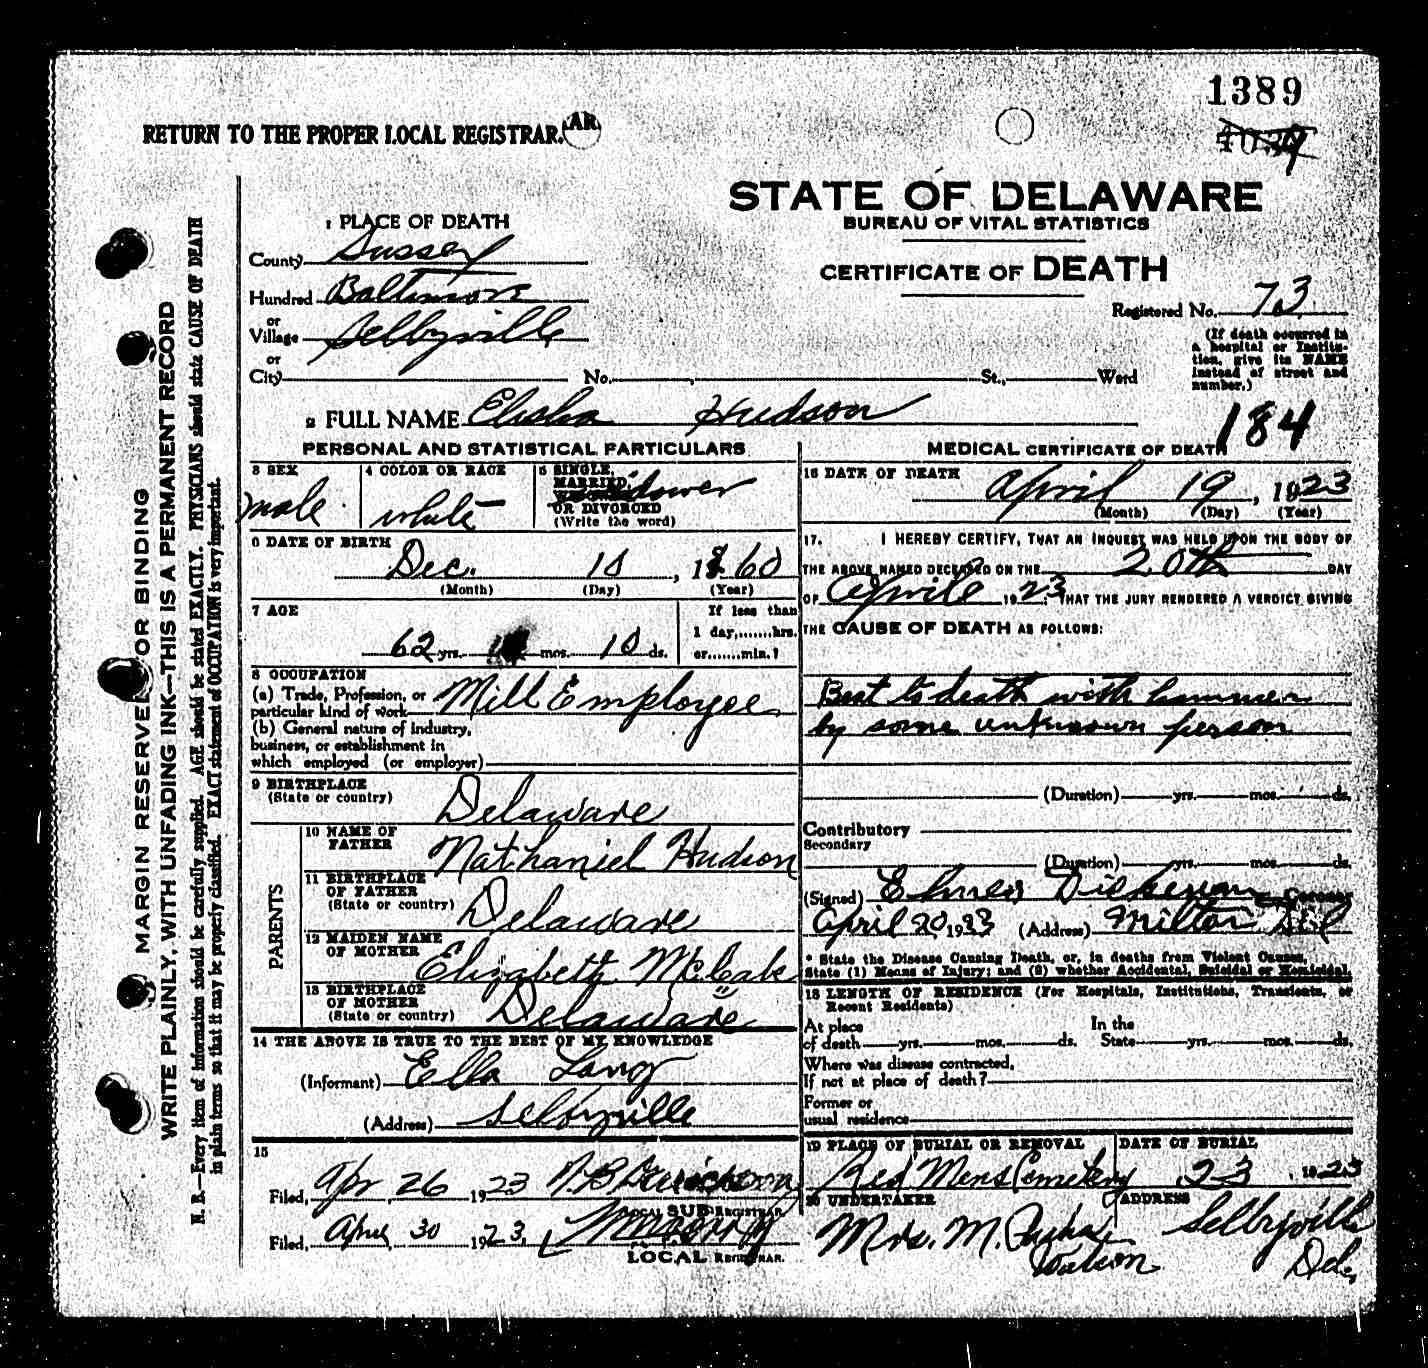 1389
RETURN TO THE PROPER LOCAL REGISTRAR. AR
STATE OF DELAWARE
BUREAU OF VITAL STATISTICS
CERTIFICATE OF DEATH
1 PLACE OF DEATH
County Sussex
Hundred Baltimore
or
Village Selbyville
or
City No. , St., Ward
Registered No. 73
(If death occurred in
a hospital or Institu-
tion, give its NAME
instead of street and
number.)
2 FULL NAME Elisha Hudson
184
PERSONAL AND STATISTICAL PARTICULARS
3 SEX
male
4 COLOR OR RACE
white
5 SINGLE,
MARRIED,
widower
OR DIVORCED
(Write the word)
6 DATE OF BIRTH
Dec. 10, 1860
(Month) (Day) (Year)
7 AGE
62 yrs. mos. 10 ds.
If less than
1 day,.......hrs.
or.......min.?
8 OCCUPATION
(a) Trade, Profession, or
particular kind of work Mill Employee
(b) General nature of industry,
business, or establishment in
which employed (or employer)
9 BIRTHPLACE
(State or country) Delaware
PARENTS
10 NAME OF
FATHER Nathaniel Hudson
11 BIRTHPLACE
OF FATHER
(State or country) Delaware
12 MAIDEN NAME
OF MOTHER Elizabeth McCabe
13 BIRTHPLACE
OF MOTHER
(State or country) Delaware
14 THE ABOVE IS TRUE TO THE BEST OF MY KNOWLEDGE
(Informant) Ella Long
(Address) Selbyville
15
Filed, Apr 26 1923 N. B.
LOCAL SUB REGISTRAR.
Filed, April 30 1923.
LOCAL REGISTRAR.
MEDICAL CERTIFICATE OF DEATH
16 DATE OF DEATH
April 19, 1923
(Month) (Day) (Year)
17. I HEREBY CERTIFY, THAT AN INQUEST WAS HELD UPON THE BODY OF
THE ABOVE NAMED DECEASED ON THE 20th DAY
OF Aprile 1923, THAT THE JURY RENDERED A VERDICT GIVING
THE CAUSE OF DEATH AS FOLLOWS:
Beat to death with hammer
by some unknown person
(Duration) yrs. mos. ds.
Contributory
Secondary
(Duration) yrs. mos. ds.
(Signed) Elmer Dickerson Coroner
April 20 1923 (Address) Milton Del
* State the Disease Causing Death, or, in deaths from Violent Causes,
State (1) Means of Injury; and (2) whether Accidental, Suicidal or Homicidal.
18 LENGTH OF RESIDENCE (For Hospitals, Institutions, Transients, or
Recent Residents)
At place In the
of death yrs. mos. ds. State yrs. mos. ds.
Where was disease contracted,
If not at place of death?
Former or
usual residence
19 PLACE OF BURIAL OR REMOVAL
Red Mens Cemetery
DATE OF BURIAL
23, 1923
20 UNDERTAKER
Mrs. M. Watson
ADDRESS
Selbyville
Del.
MARGIN RESERVED FOR BINDING
WRITE PLAINLY, WITH UNFADING INK—THIS IS A PERMANENT RECORD
N. B.—Every item of information should be carefully supplied. AGE should be stated EXACTLY. PHYSICIANS should state CAUSE OF DEATH
in plain terms so that it may be properly classified. EXACT statement of OCCUPATION is very important.